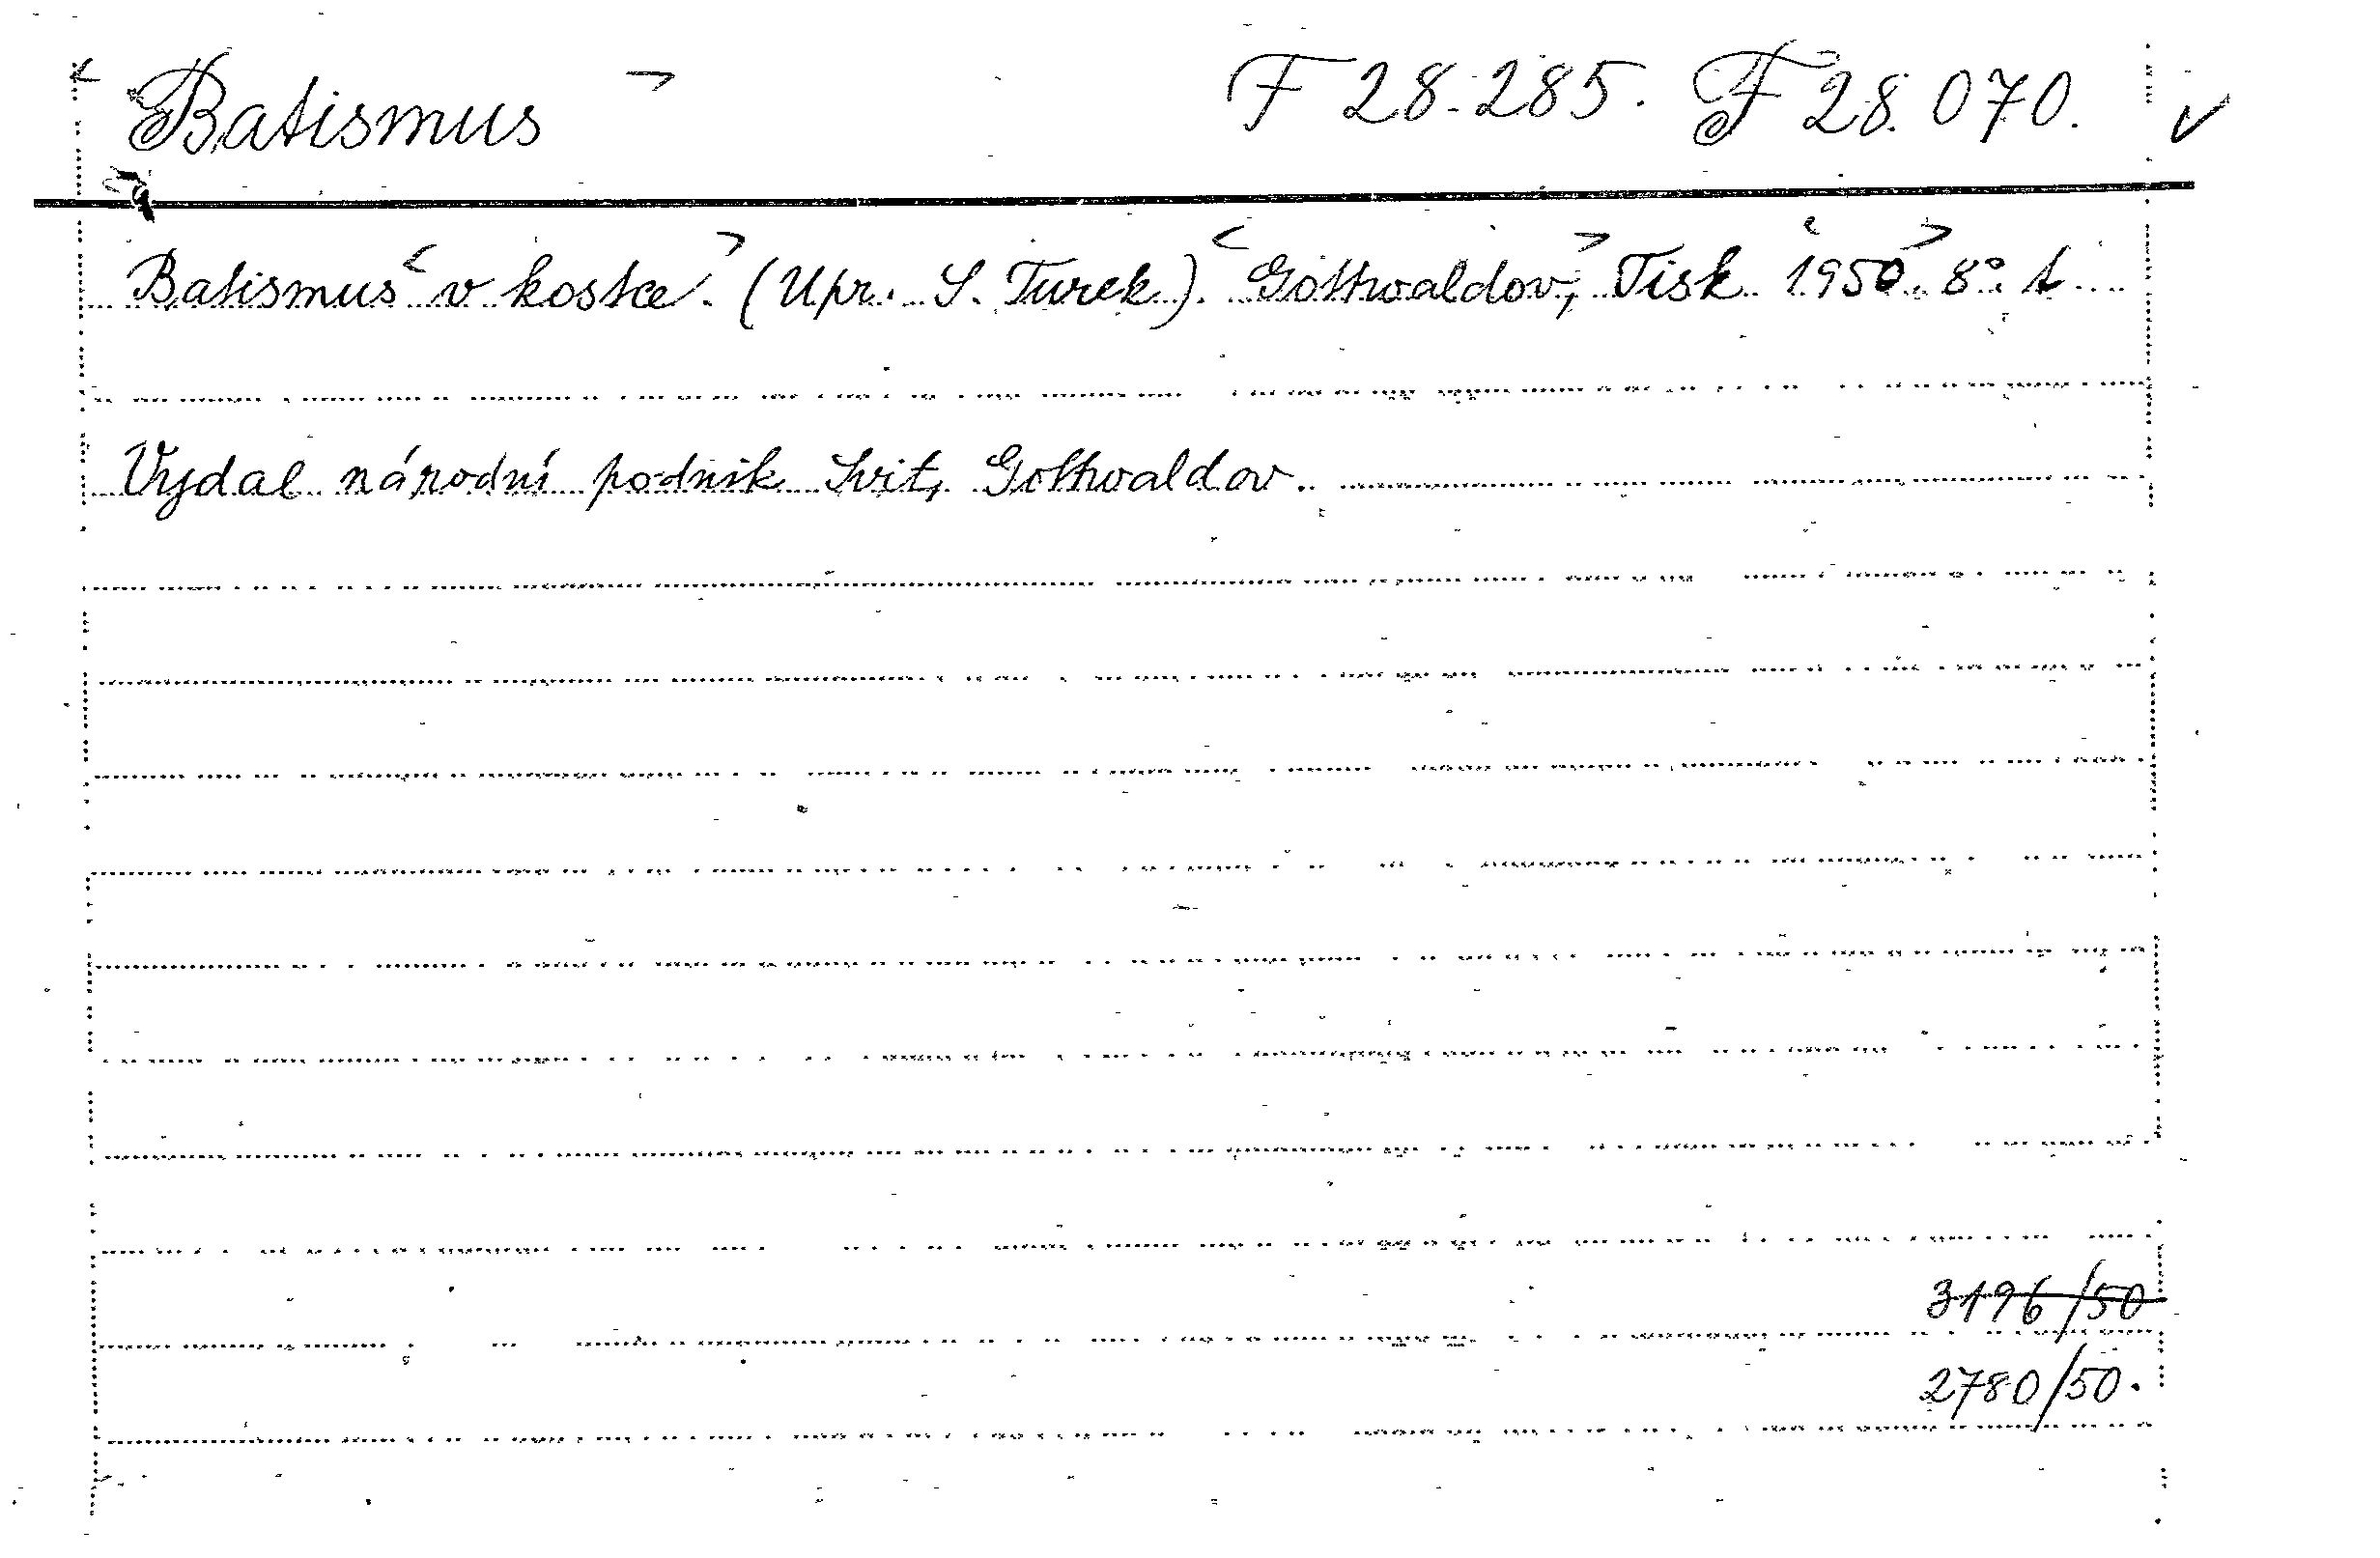 Batismus F 28.285. F 28.070. ✓
Batismus v kostce. (Upr. S. Turek). Gottwaldov, Tisk 1950. 8°.
Vydal národní podnik Svit, Gottwaldov.
3196/50
2780/50.